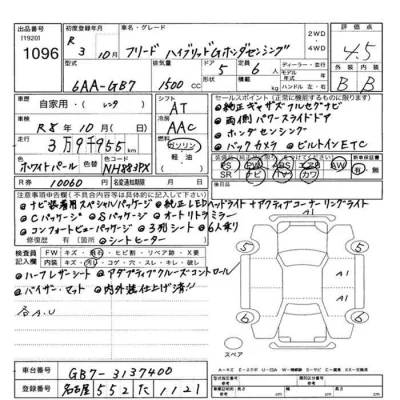 出品番号 [1920] 1096
初度登録年月 R 3年 10月
車名・グレード フリード ハイブリッドGホンダセンシング
2WD ・ 4WD
評価点 4.5
型式 6AA-GB7
排気量 1500 cc
ドア 5
定員 6人
モデル年式
ハンドル 左・右
外装 B
内装 B
車歴 自家用・(レンタ
シフト AT
車検 R8年10月
冷房 AAC
走行 3万9千955km
燃料 ガソリン 軽油
外装色 ホワイトパール
色替
カラーNo. NH883PX
R券 10060円
名変期限
セールスポイント(正常に機能するものに限ります)
●純正ギャザズフルセグナビ
●両側パワースライドドア
●ホンダセンシング
●バックカメラ ●ビルトインETC
SR ナビ TV カワ
注意事項欄(不具合内容等は具体的に記入)
●ナビ装着用スペシャルパッケージ ●純正LEDヘッドライト ●アクティブコーナーリングライト
●Cパッケージ ●Sパッケージ ●オートリトラミラー
●コンフォートビューパッケージ ●3列シート ●6人乗り
修復歴 有 (箇所 ●シートヒーター
検査員記入欄
FW キズ・飛石・ヒビ割・リペア跡・X要
内装 キズ・汚れ・コゲ・穴・スレ・キレ・破レ
●ハーフレザーシート ●アダプティブクルーズコントロール
●バイザー、マット ●内外装仕上げ済!!
A1
A1
5
5
6
6
スペア
車台番号 GB7-3137400
登録番号 名古屋 552 た 1121
A-キズ E-エクボ U-凹み W-補修跡 S-サビ C-腐食 X-要交換 XX-交換済